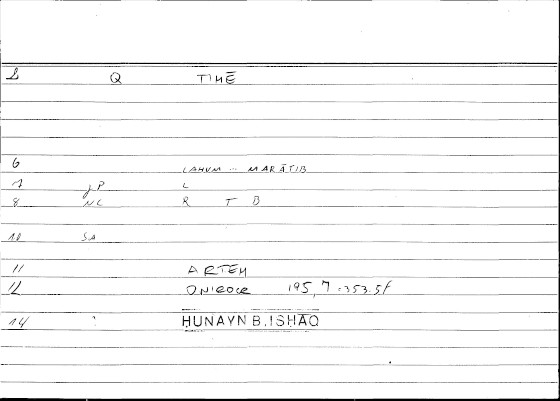 Q TIMĒ
6 LAHUM ... MARĀTIB
7 JP L
8 NC R T B
10 SA
11 ARTEM
12 ONIROCR 195,7 = 353.5f
14 : ḤUNAYN B. ISḤĀQ